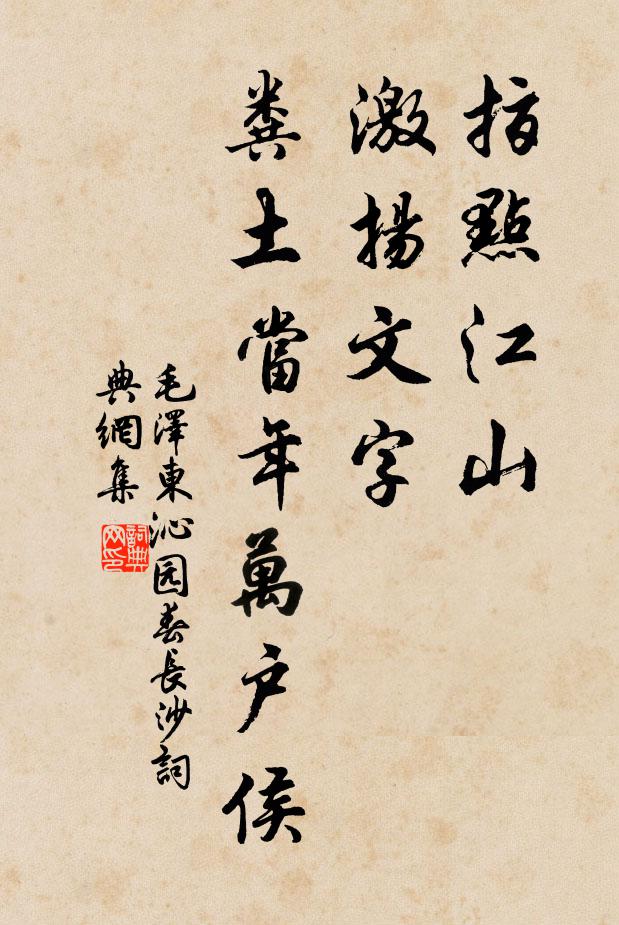 指點江山
激揚文字
糞土當年萬户侯
毛澤東沁园春長沙詞
典網集
詞典网印